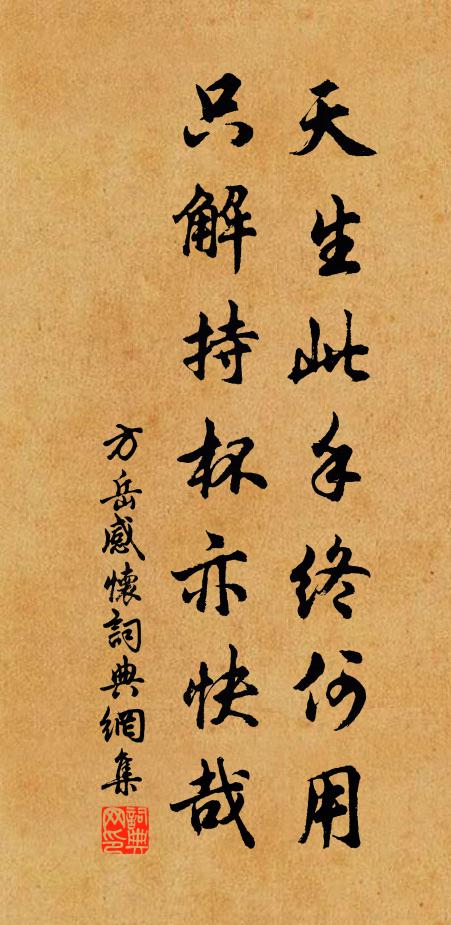 天生此手終何用
只解持杯亦快哉
方岳感懷詞典網集
詞典
网印